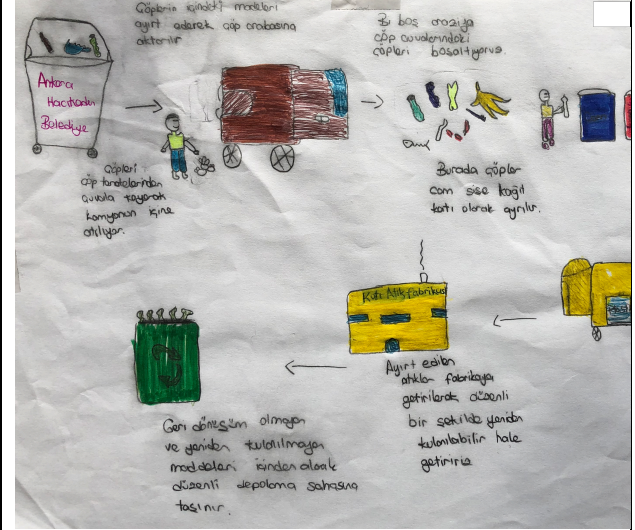 Çöplerin içindeki modeleri
ayırt ederek çöp arabasına
aktarılır
Bi boş araziye
çöp kuvalarındaki
çöpleri boşaltıyoruz.
Ankara
Belediye
Çöpleri
çöp
kamyonun içine
atılıyor.
Burada çöpler
cam şişe kağıt
katı olarak ayrılır.
Katı Atık Fabrikası
Ayırt edilen
atıklar fabrikaya
getirilerek düzenli
bir şekilde yeniden
kulanılabilir hale
getiririz
Geri dönüşüm olmayan
ve yeniden kulanılmayan
maddeleri içinden alarak
düzenli depolama sahasına
taşınır.